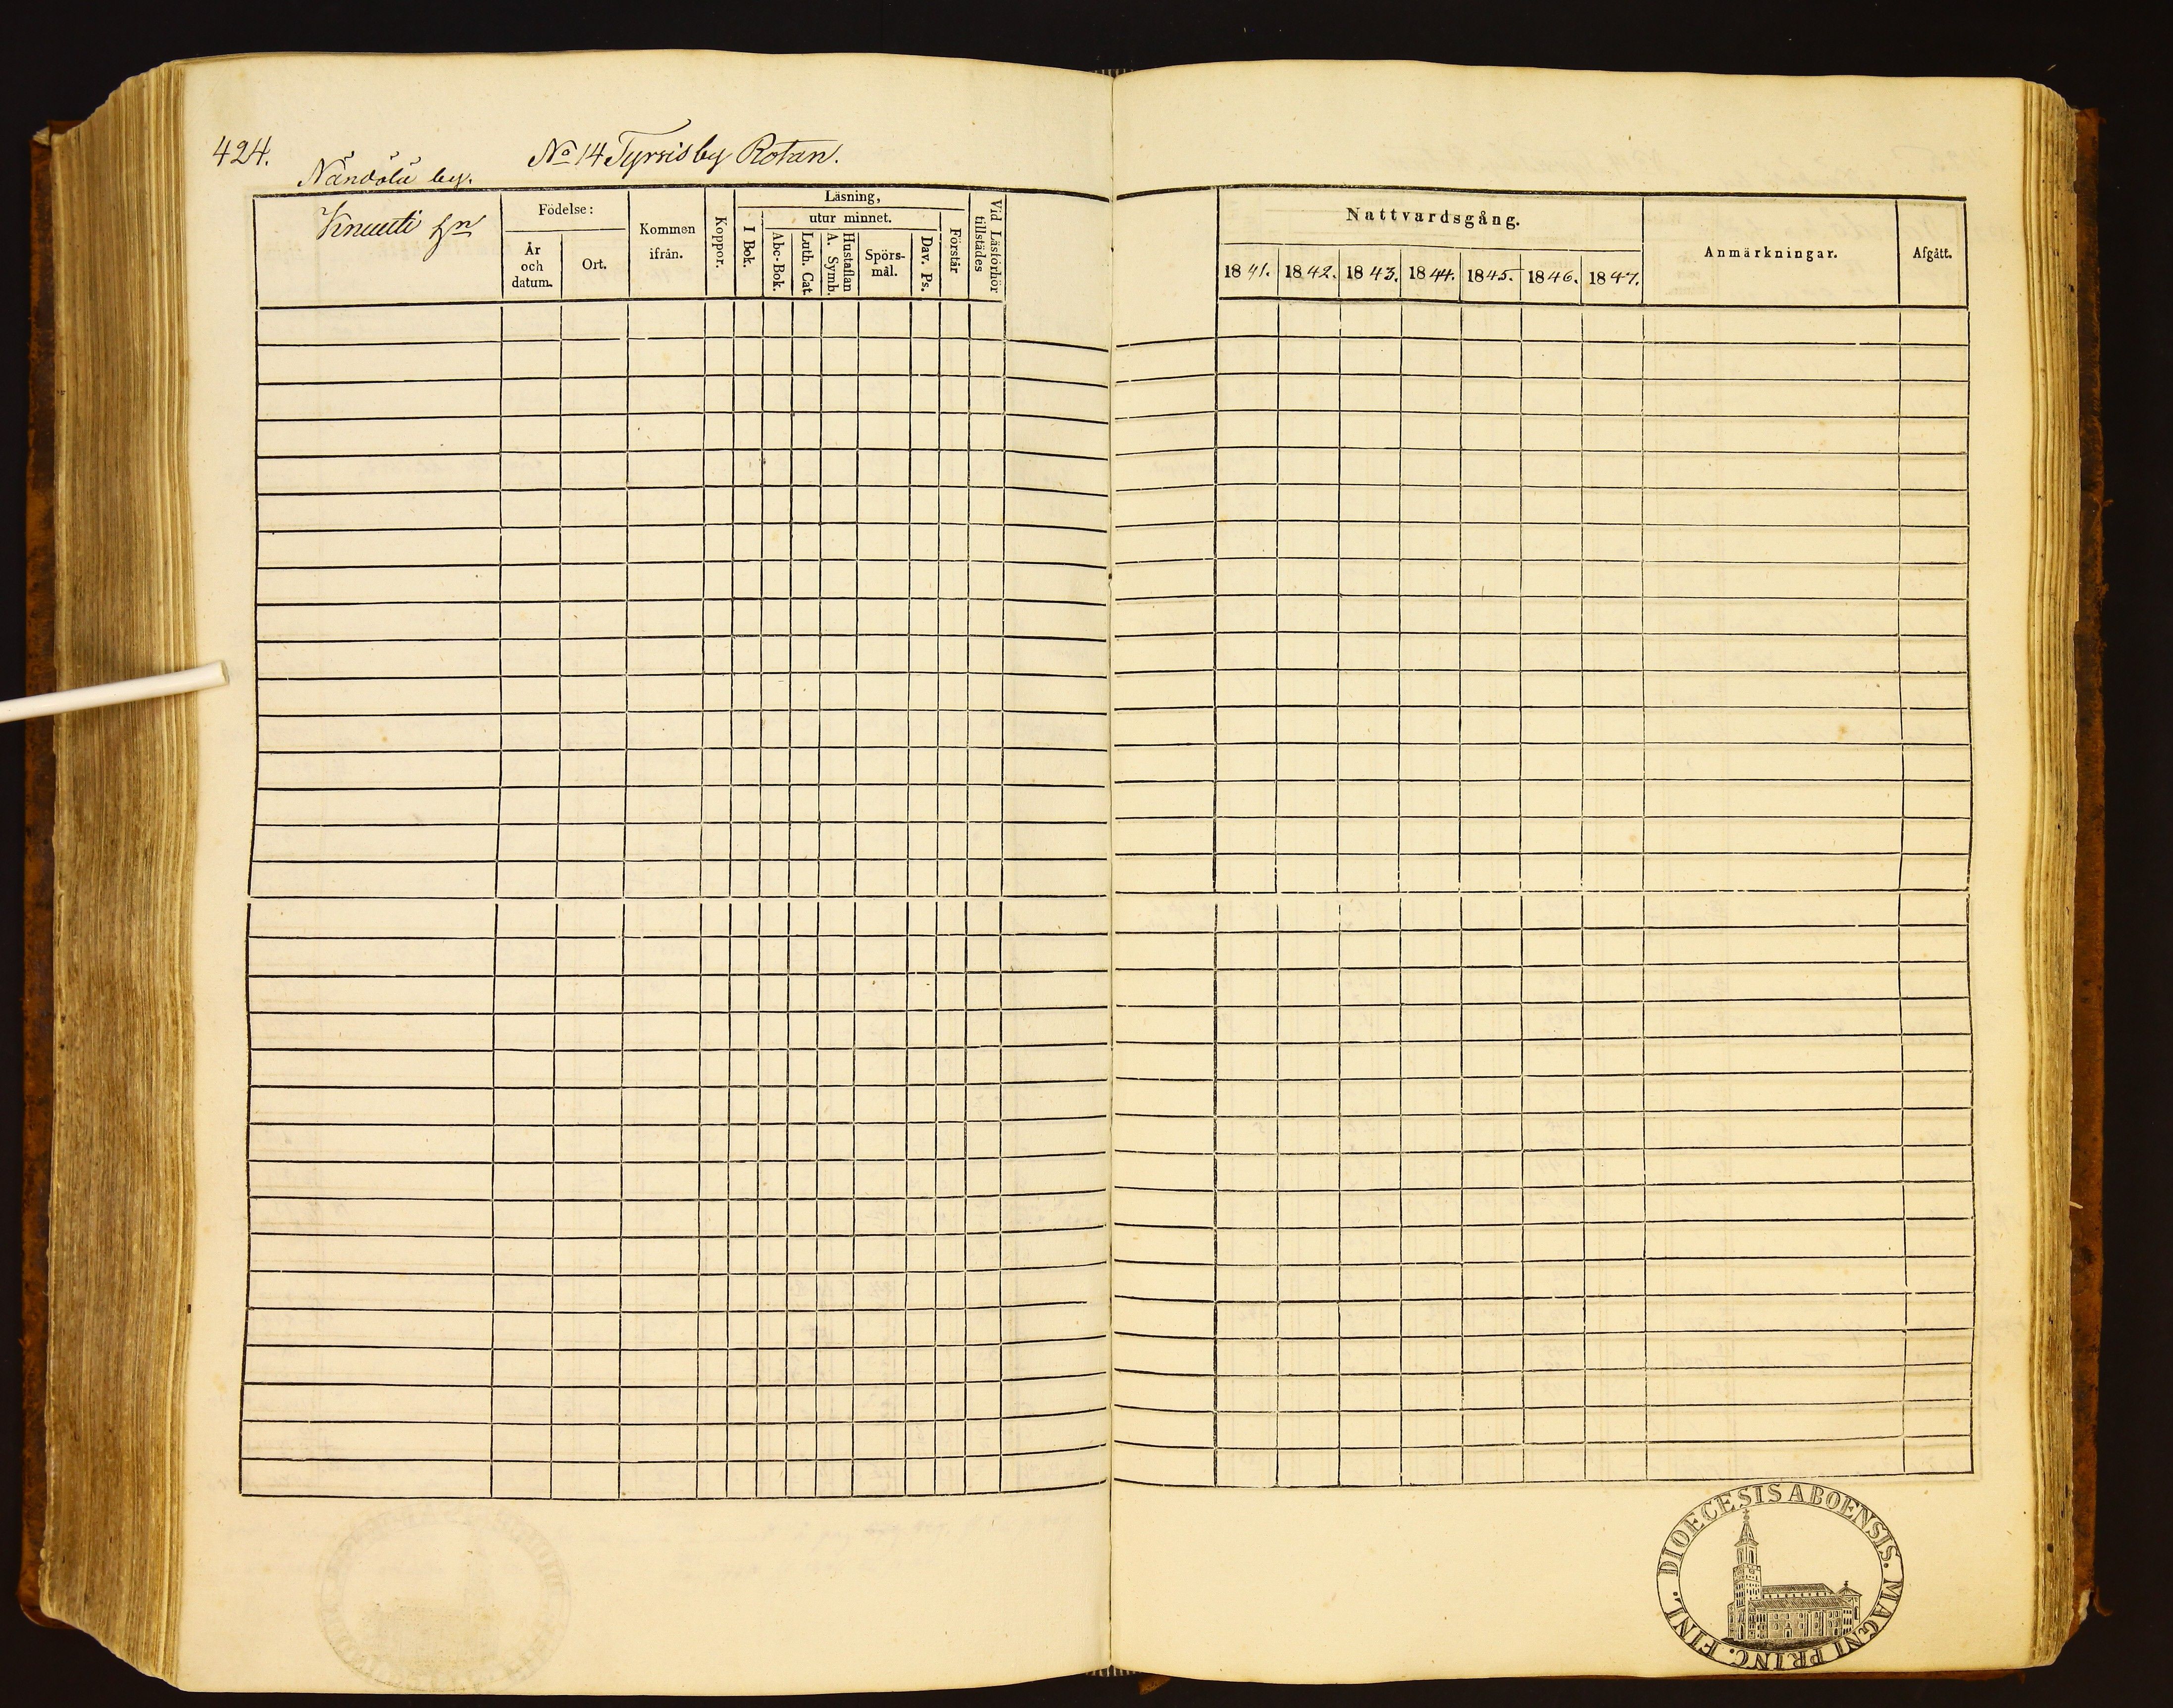 424.
No 14 Tyrsisby Rotan.
Nändölä by.
Knuuti Hn
Födelse:
År och datum.
Ort.
Kommen ifrån.
Koppor.
Läsning,
I Bok.
utur minnet.
Abc-Bok.
Luth. Cat.
Hustaflan A. Symb.
Spörs-mål.
Dav. Ps.
Förstår
Vid Läsförhör tillstädes
Nattvardsgång.
1841. 1842. 1843. 1844. 1845. 1846. 1847.
Anmärkningar.
Afgått.
DIOECESIS ABOENSIS. MAGNI PRINC. FINL.